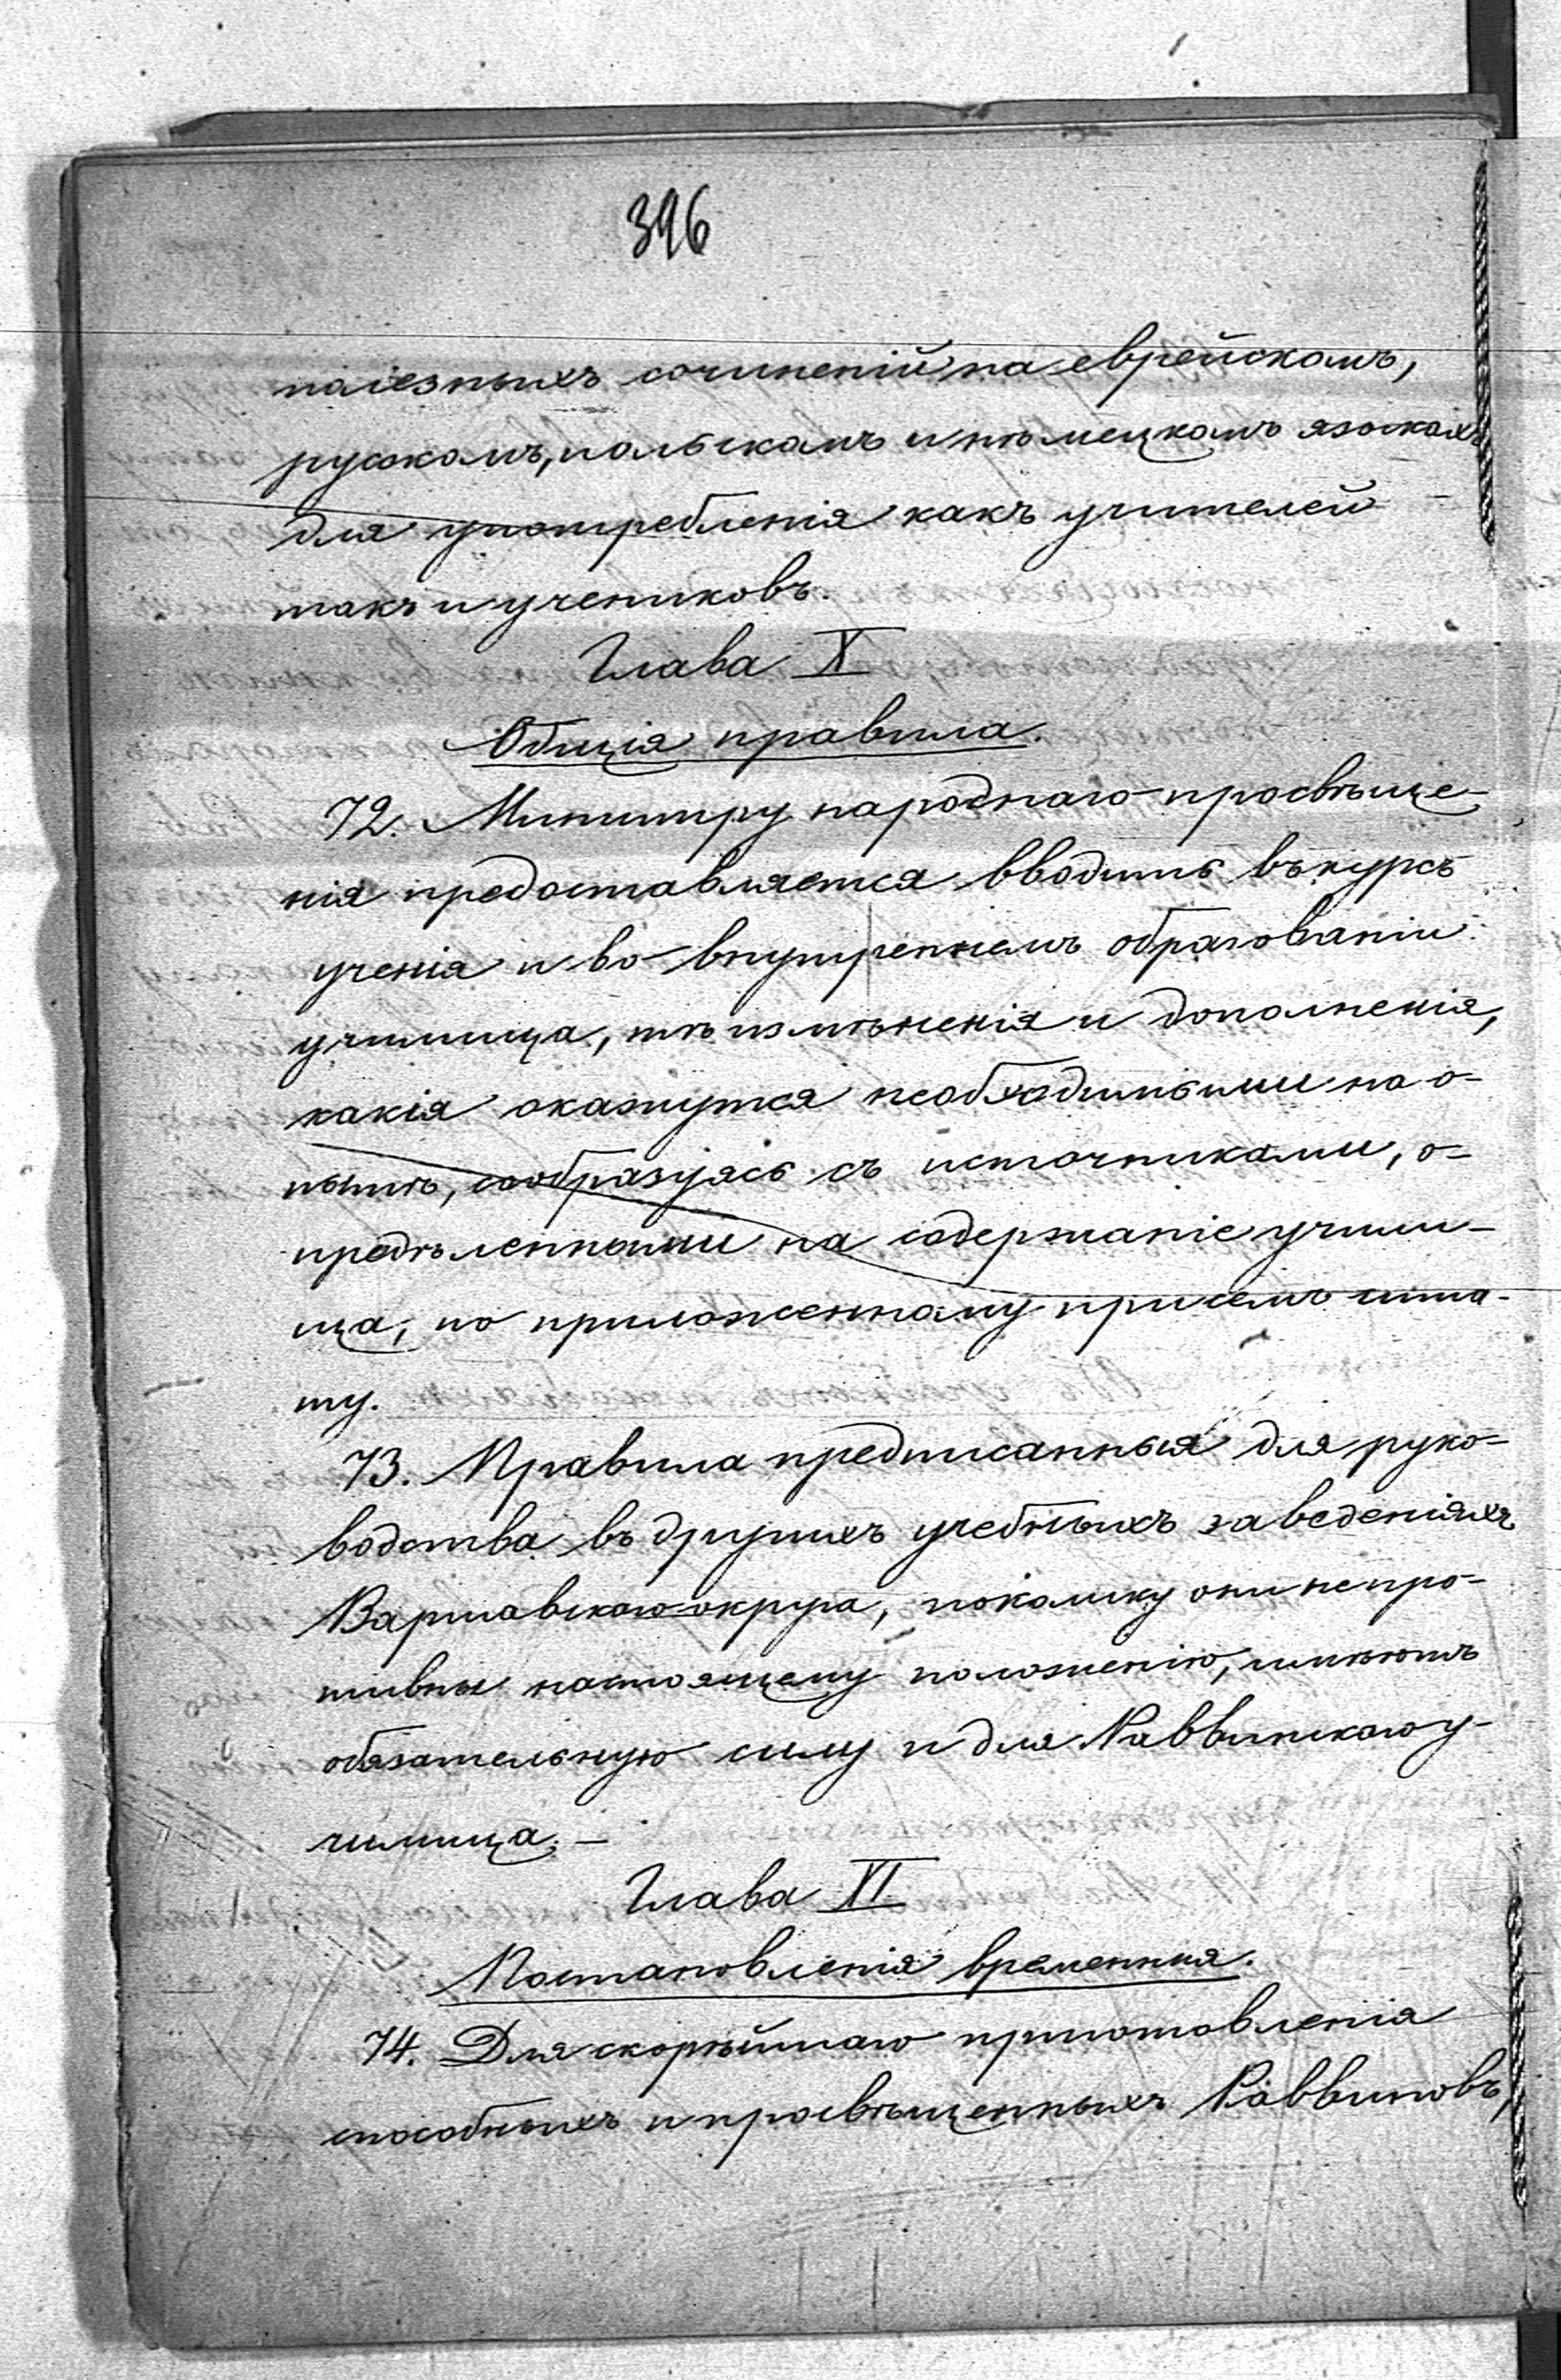 396
полезныхъ сочиненій на еврейскомъ,
русскомъ, польскомъ и нѣмецкомъ языкахъ
для употребленія какъ учителей
такъ и учениковъ.
Глава X
Общія правила.
72. Министру народнаго просвѣще-
нія предоставляется вводить въ курсъ
ученія и во внутреннемъ образованіи
училища, тѣ измѣненія и дополненія,
какія окажутся необходимыми на о-
пытѣ, сообразуясь съ источниками, о-
предѣленными на содержаніе учили-
ща, по приложенному при семъ шта-
ту.
73. Правила предписанныя для руко-
водства въ другихъ учебныхъ заведеніяхъ
Варшавскаго округа, поколику они непро-
тивны настоящему положенію, имѣютъ
обязательную силу и для Раввинскаго у-
чилища. —
Глава XI
Постановленія временныя.
74. Для скорѣйшаго приготовленія
способныхъ и просвѣщенныхъ Раввиновъ,